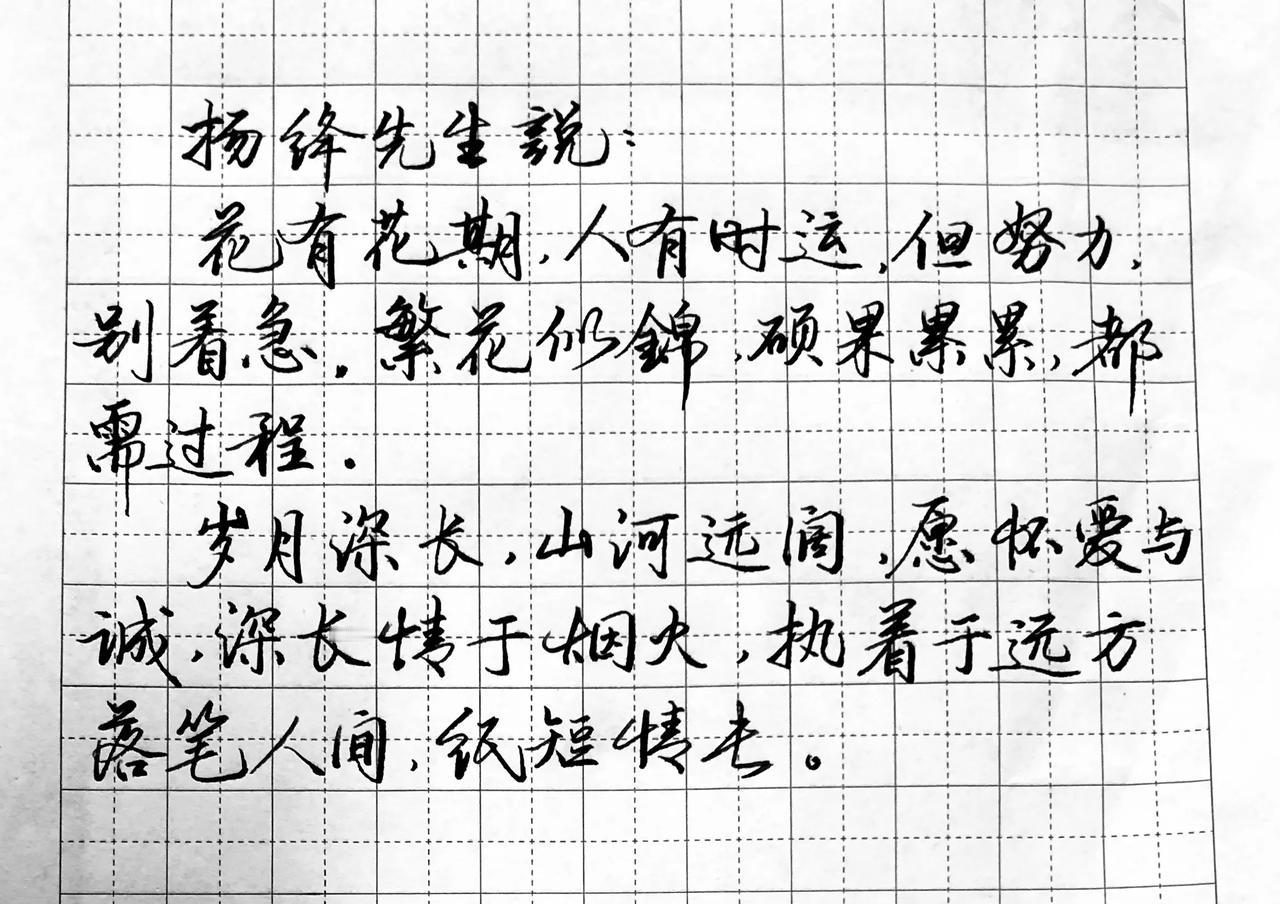 扬绛先生説：
花有花期，人有时运，但努力，
别着急。繁花似錦，硕果累累，都
需过程。
岁月深长，山河远阔，愿怀爱与
诚，深长情于烟火，执着于远方
落笔人间，纸短情长。